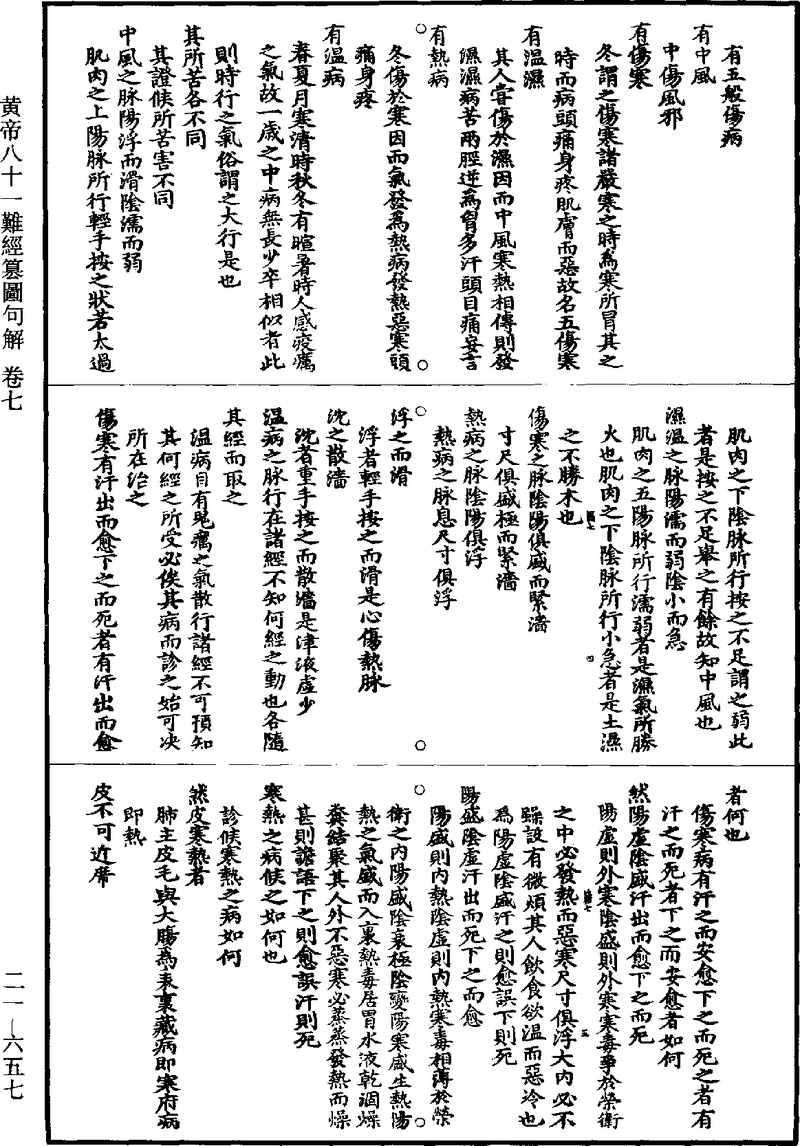 黄帝八十一難經纂圖句解 卷七
有五般傷病
有中風
中傷風邪
有傷寒
冬謂之傷寒諸嚴寒之時為寒所冒其之
時而病頭痛身疼肌膚而惡故名五傷寒
有溫濕
其人嘗傷於濕因而中風寒熱相傳則發
濕濕病苦兩脛逆為胷多汗頭目痛妄言
有熱病
冬傷於寒因而氣發為熱病發熱惡寒頭
痛身疼
有溫病
春夏月寒清時秋冬有暄暑時人感疫癘
之氣故一歲之中病無長少卒相似者此
則時行之氣俗謂之大行是也
其所苦各不同
其證候所苦害不同
中風之脉陽浮而滑陰濡而弱
肌肉之上陽脉所行輕手按之狀若太過
肌肉之下陰脉所行按之不足謂之弱此
者是按之不足舉之有餘故知中風也
濕溫之脉陽濡而弱陰小而急
肌肉之五陽脉所行濡弱者是濕氣所勝
火也肌肉之下陰脉所行小急者是土濕
之不勝木也
傷寒之脉陰陽俱盛而緊濇
寸尺俱盛極而緊濇
熱病之脉陰陽俱浮
熱病之脉息尺寸俱浮
浮之而滑
浮者輕手按之而滑是心傷熱脉
沈之散濇
沈者重手按之而散濇是津液虛少
溫病之脉行在諸經不知何經之動也各隨
其經而取之
溫病自有鬼癘之氣散行諸經不可預知
其何經之所受必俟其病而診之始可決
所在治之
傷寒有汗出而愈下之而死者有汗出而愈
者何也
傷寒病有汗之而安愈下之而死之者有
汗之而死者下之而安愈者如何
然陽虛陰盛汗出而愈下之而死
陽虛則外寒陰盛則外寒寒毒爭於榮衛
之中必發熱而惡寒尺寸俱浮大內必不
躁設有微煩其人飲食欲溫而惡冷也
為陽虛陰盛汗之則愈誤下則死
陽盛陰虛汗出而死下之而愈
陽盛則內熱陰虛則內熱寒毒相薄於榮
衛之內陽盛陰衰極陰變陽寒盛生熱陽
熱之氣盛而入裏熱毒居胃水液乾涸燥
糞結聚其人外不惡寒必蒸蒸發熱而燥
甚則譫語下之則愈誤汗則死
寒熱之病候之如何也
診候寒熱之病如何
然皮寒熱者
肺主皮毛與大腸為表裏藏病即寒府病
即熱
皮不可近席
二一—六五七